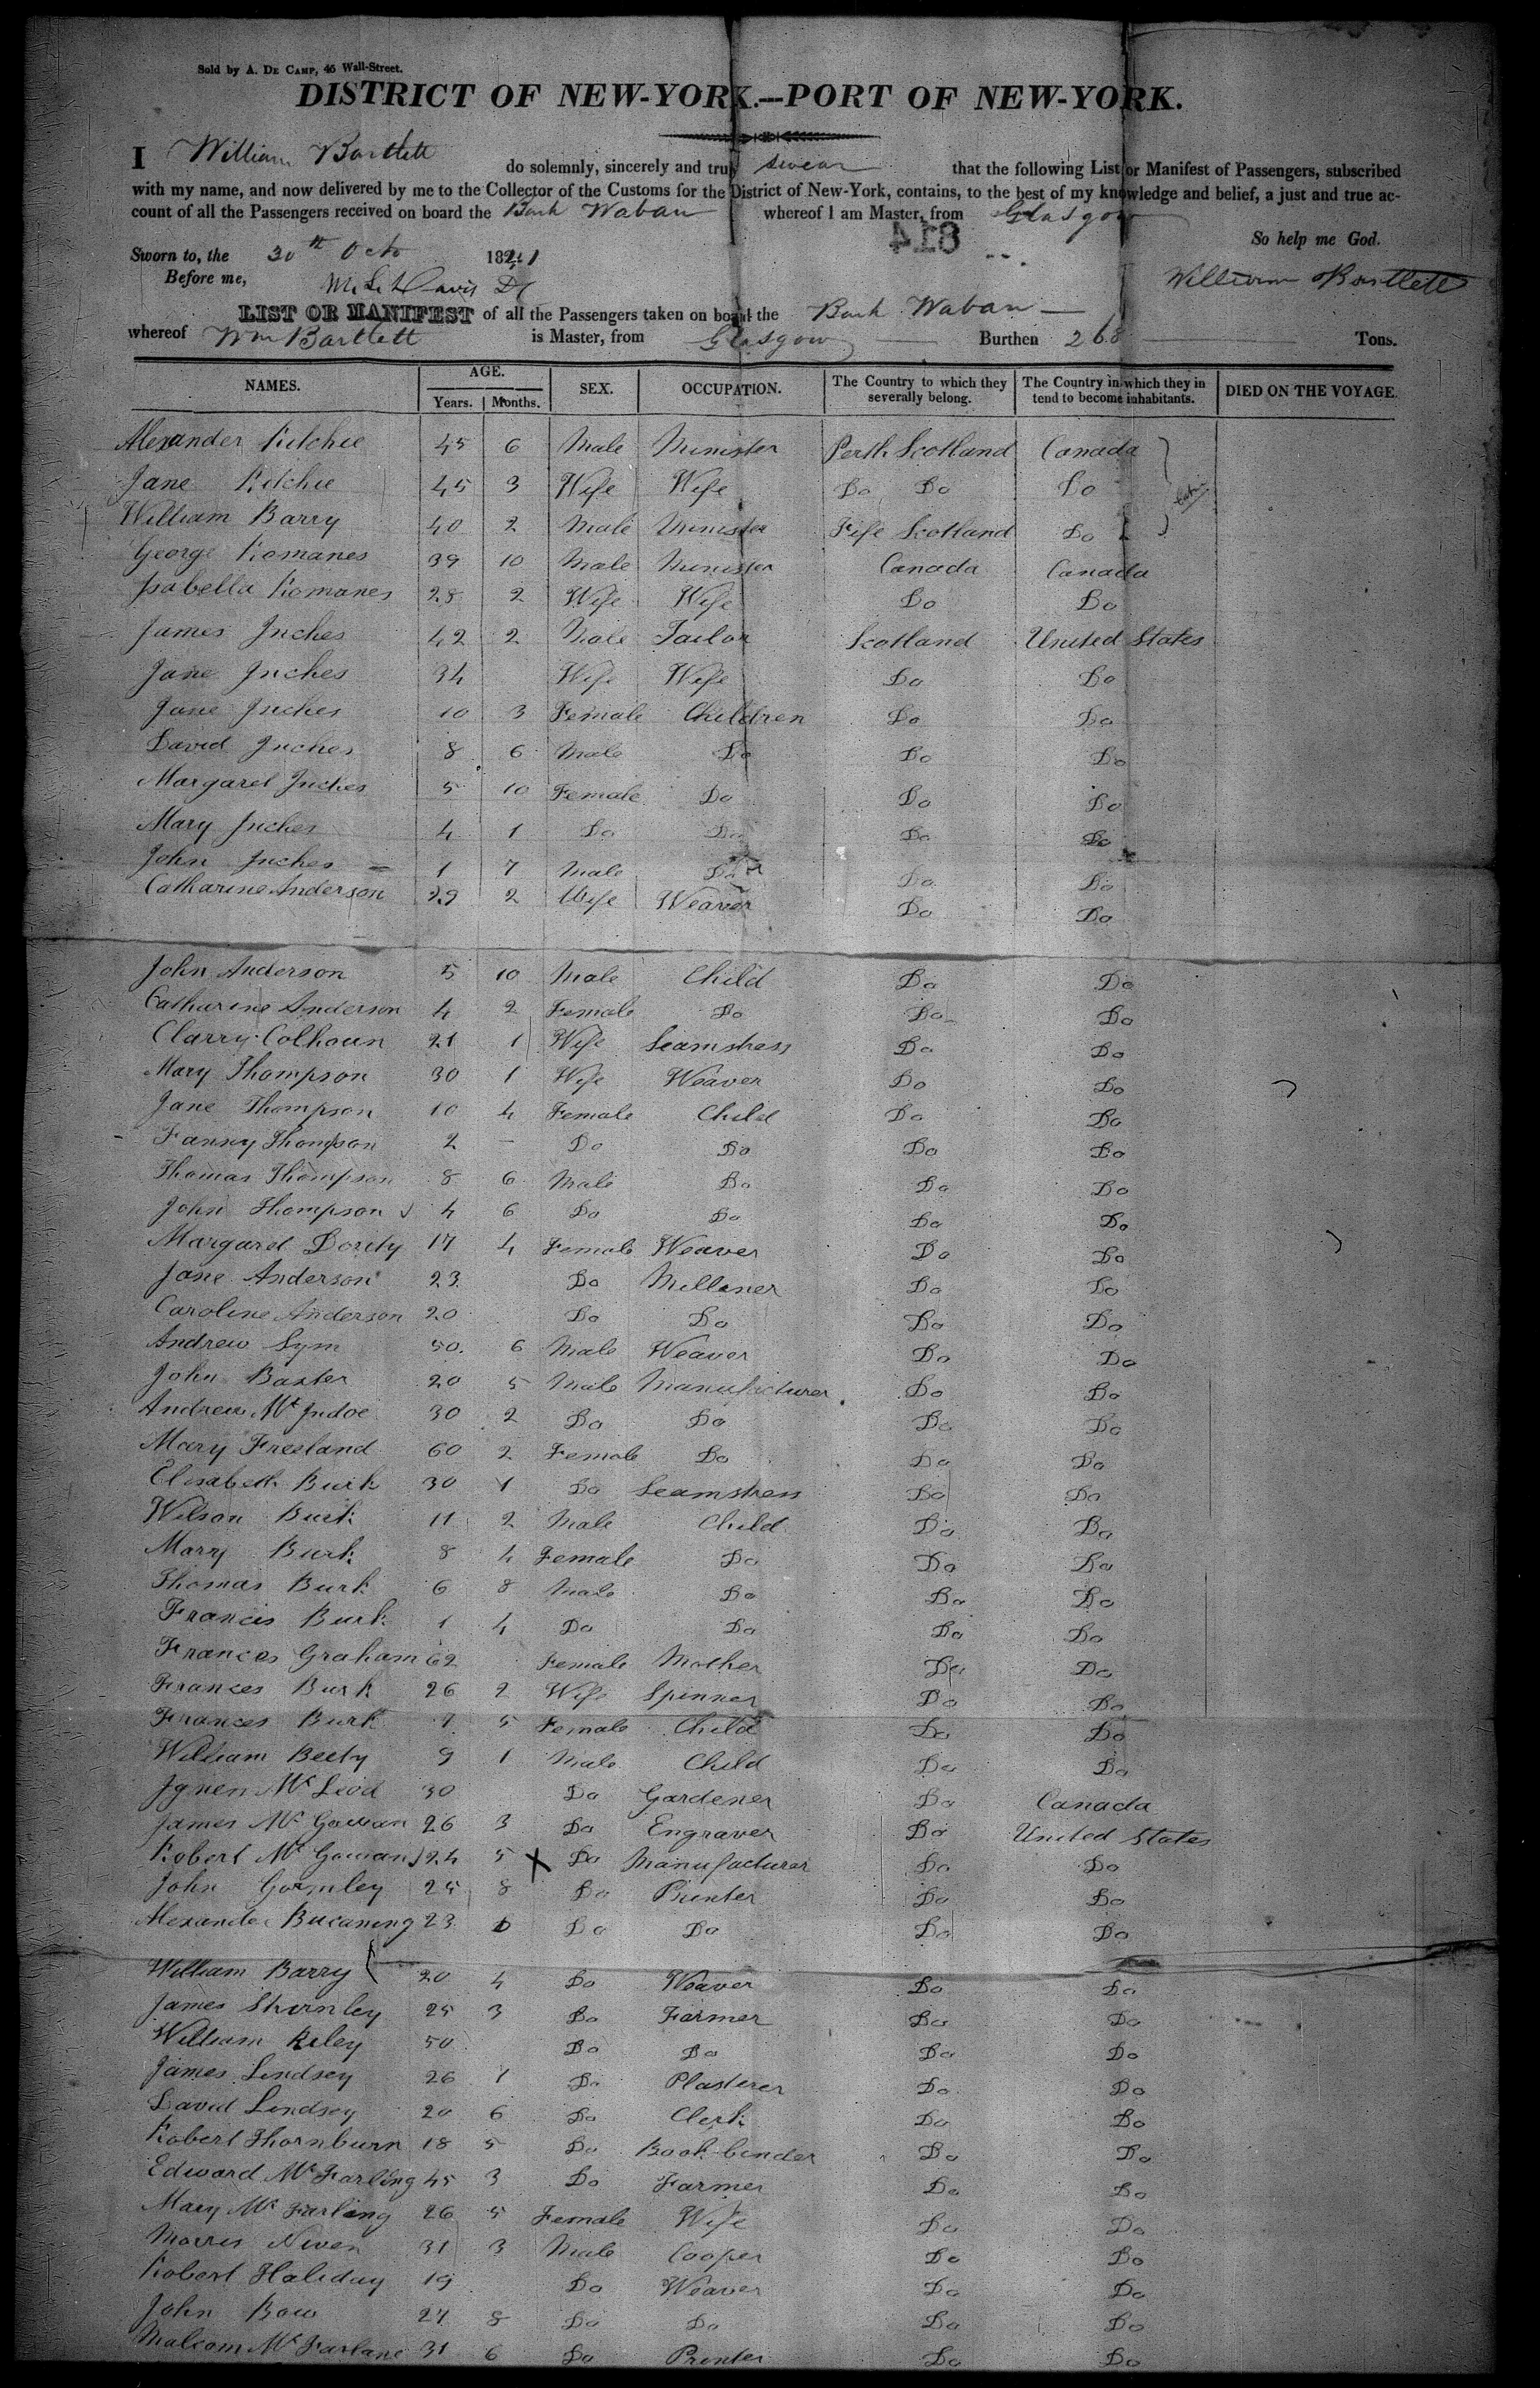 Sold by A. DE CAMP, 46 Wall-Street.
DISTRICT OF NEW-YORK.—PORT OF NEW-YORK.
I William Bartlett do solemnly, sincerely and truly swear that the following List or Manifest of Passengers, subscribed
with my name, and now delivered by me to the Collector of the Customs for the District of New-York, contains, to the best of my knowledge and belief, a just and true ac-
count of all the Passengers received on board the Bark Waban whereof I am Master, from Glasgow
418
So help me God.
Sworn to, the 30th Octo 1841
Before me, M. L. Davis
William Bartlett
LIST OR MANIFEST of all the Passengers taken on board the Bark Waban
whereof Wm Bartlett is Master, from Glasgow Burthen 268 Tons.
NAMES. AGE. Years. Months. SEX. OCCUPATION. The Country to which they severally belong. The Country in which they intend to become inhabitants. DIED ON THE VOYAGE.
Alexander Ritchie 45 6 Male Minister Perth Scotland Canada
Jane Ritchie 45 3 Wife Wife Do Do Do
William Barry 40 2 Male Minister Fife Scotland Do
George Romanes 39 10 Male Minister Canada Canada
Isabella Romanes 28 2 Wife Wife Do Do
James Inches 42 2 Male Tailor Scotland United States
Jane Inches 34 Wife Wife Do Do
Jane Inches 10 3 Female Children Do Do
David Inches 8 6 Male Do Do Do
Margaret Inches 5 10 Female Do Do Do
Mary Inches 4 1 Do Do Do Do
John Inches 1 7 Male Do Do Do
Catharine Anderson 29 2 Wife Weaver Do Do
John Anderson 5 10 Male Child Do Do
Catharine Anderson 4 2 Female Do Do Do
Clarry Colhoun 21 1 Wife Seamstress Do Do
Mary Thompson 30 1 Wife Weaver Do Do
Jane Thompson 10 4 Female Child Do Do
Fanny Thompson 2 – Do Do Do Do
Thomas Thompson 8 6 Male Do Do Do
John Thompson 4 6 Do Do Do Do
Margaret Dority 17 4 Female Weaver Do Do
Jane Anderson 23 Do Millaner Do Do
Caroline Anderson 20 Do Do Do Do
Andrew Sym 50 6 Male Weaver Do Do
John Baxter 20 5 Male Manufacturer Do Do
Andrew McIndoe 30 2 Do Do Do Do
Mary Freeland 60 2 Female Do Do Do
Elisabeth Burk 30 1 Do Seamstress Do Do
Wilson Burk 11 2 Male Child Do Do
Mary Burk 8 4 Female Do Do Do
Thomas Burk 6 8 Male Do Do Do
Francis Burk 1 4 Do Do Do Do
Frances Graham 62 Female Mother Do Do
Frances Burk 26 2 Wife Spinner Do Do
Frances Burk 1 5 Female Child Do Do
William Beety 9 1 Male Child Do Do
McLeod 30 Do Gardener Do Canada
James McGowan 26 3 Do Engraver Do United States
Robert McGowan 24 5 X Do Manufacturer Do Do
John Gormley 25 8 Do Printer Do Do
Alexander Bucaning 23 6 Do Do Do Do
William Barry 20 4 Do Weaver Do Do
James Shurnley 25 3 Do Farmer Do Do
William Riley 50 Do Do Do Do
James Lindsey 26 1 Do Plasterer Do Do
David Lindsey 20 6 Do Clerk Do Do
Robert Thornburn 18 5 Do Book-binder Do Do
Edward McFarling 45 3 Do Farmer Do Do
Mary McFarling 26 5 Female Wife Do Do
Morris Niven 31 3 Male Cooper Do Do
Robert Haliday 19 Do Weaver Do Do
John Bow 27 8 Do Do Do Do
Malcom McFarlane 31 6 Do Printer Do Do